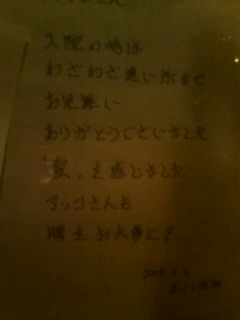 さん
入院の時は
わざわざ遠い所まで
お見舞い
ありがとうございました
“愛„を感じました
アッコさんも
腰をお大事に!